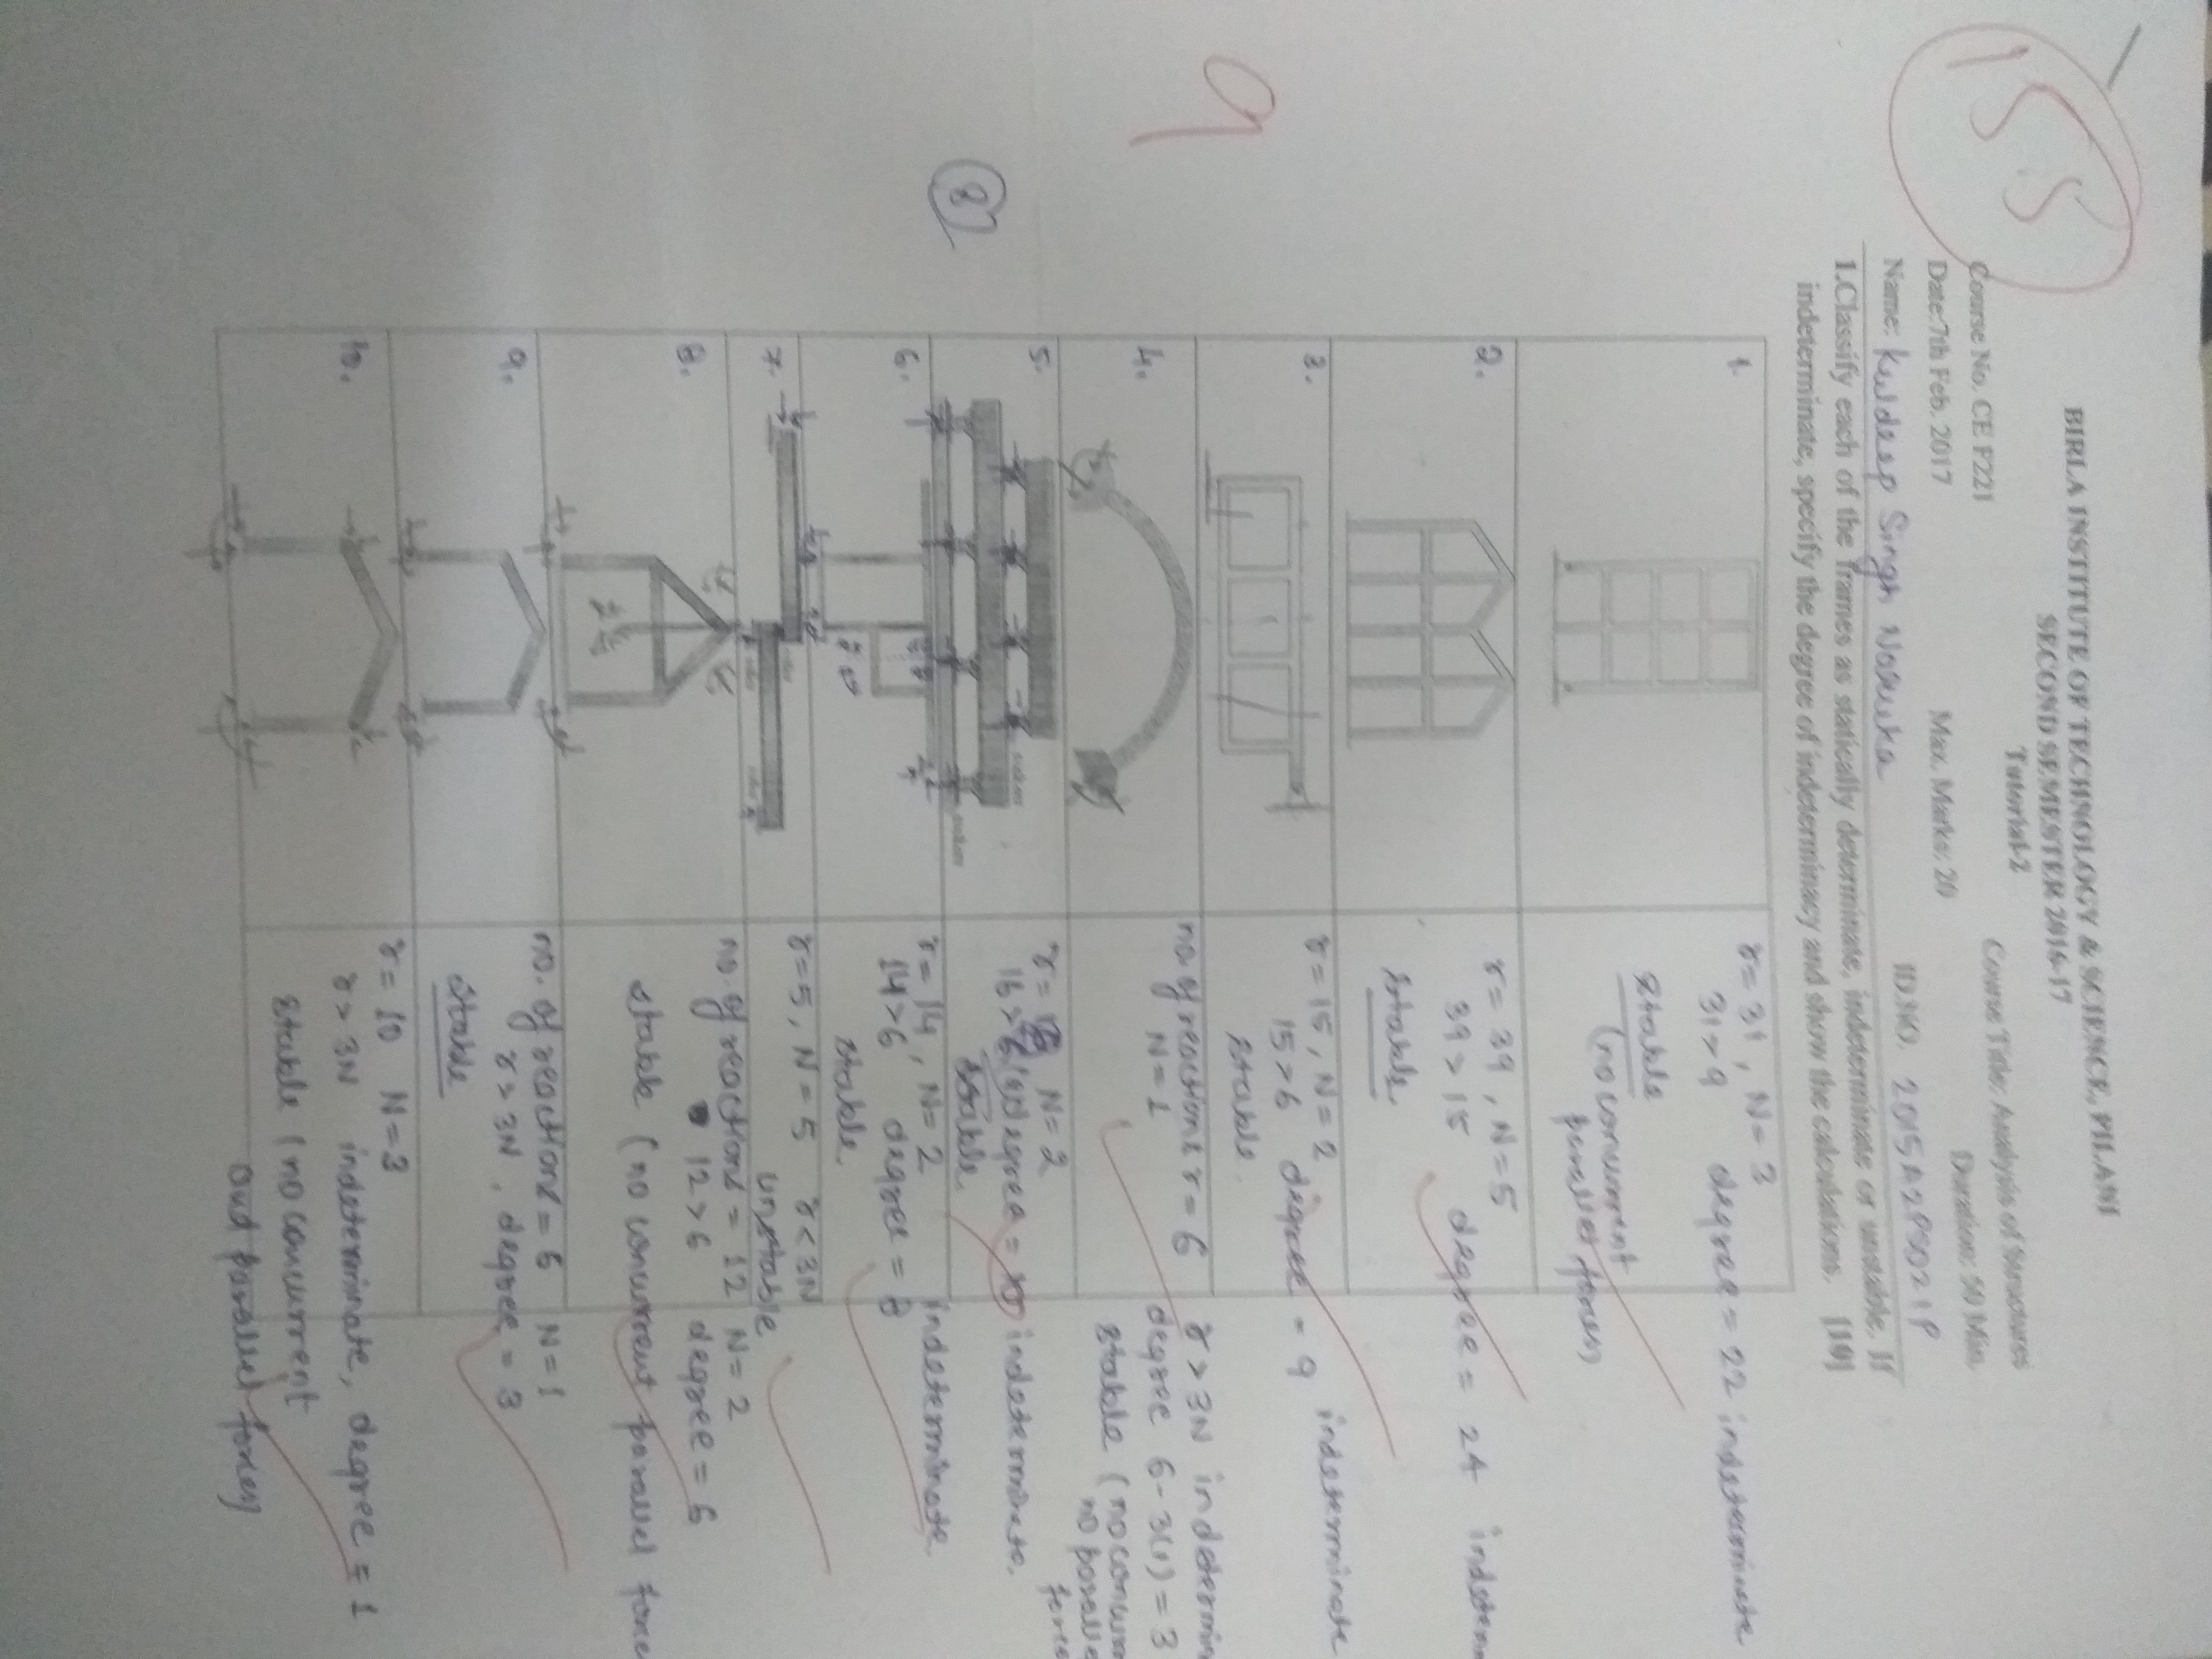 15.5
BIRLA INSTITUTE OF TECHNOLOGY & SCIENCE, PILANI
SECOND SEMESTER 2016-17
Tutorial-2
Course No. CE F221 Course Title: Analysis of Structures
Date:7th Feb. 2017 Max. Marks: 20 Duration: 50 Min.
Name: Kuldeep Singh Naruka ID.NO. 2015A2PS021P
1.Classify each of the frames as statically determinate, indeterminate or unstable. If
indeterminate, specify the degree of indeterminacy and show the calculations. [10]
1. r = 31, N = 3
31 > 9 degree = 22 indeterminate
stable
(no concurrent
parallel forces)
2. r = 39, N = 5
39 > 15 degree = 24
stable
3. r = 15, N = 2
15 > 6 degree = 9 indeterminate
stable.
9
4. no of reactions r = 6 r > 3N
N = 1 degree 6 - 3(1) = 3
stable (no
no
force
5. N = 2
16 > 6 degree = 10 indeterminate.
stable.
8
6. r = 14, N = 2 indeterminate.
14 > 6 degree = 8
stable.
7. r = 5, N = 5 r < 3N
unstable
8. no. of reactions = 12 N = 2
12 > 6 degree = 6
stable (no concurrent parallel force
9. no. of reactions = 6 N = 1
r > 3N, degree = 3
stable
10. r = 10 N = 3
r > 3N indeterminate, degree = 1
stable (no concurrent
and parallel forces)